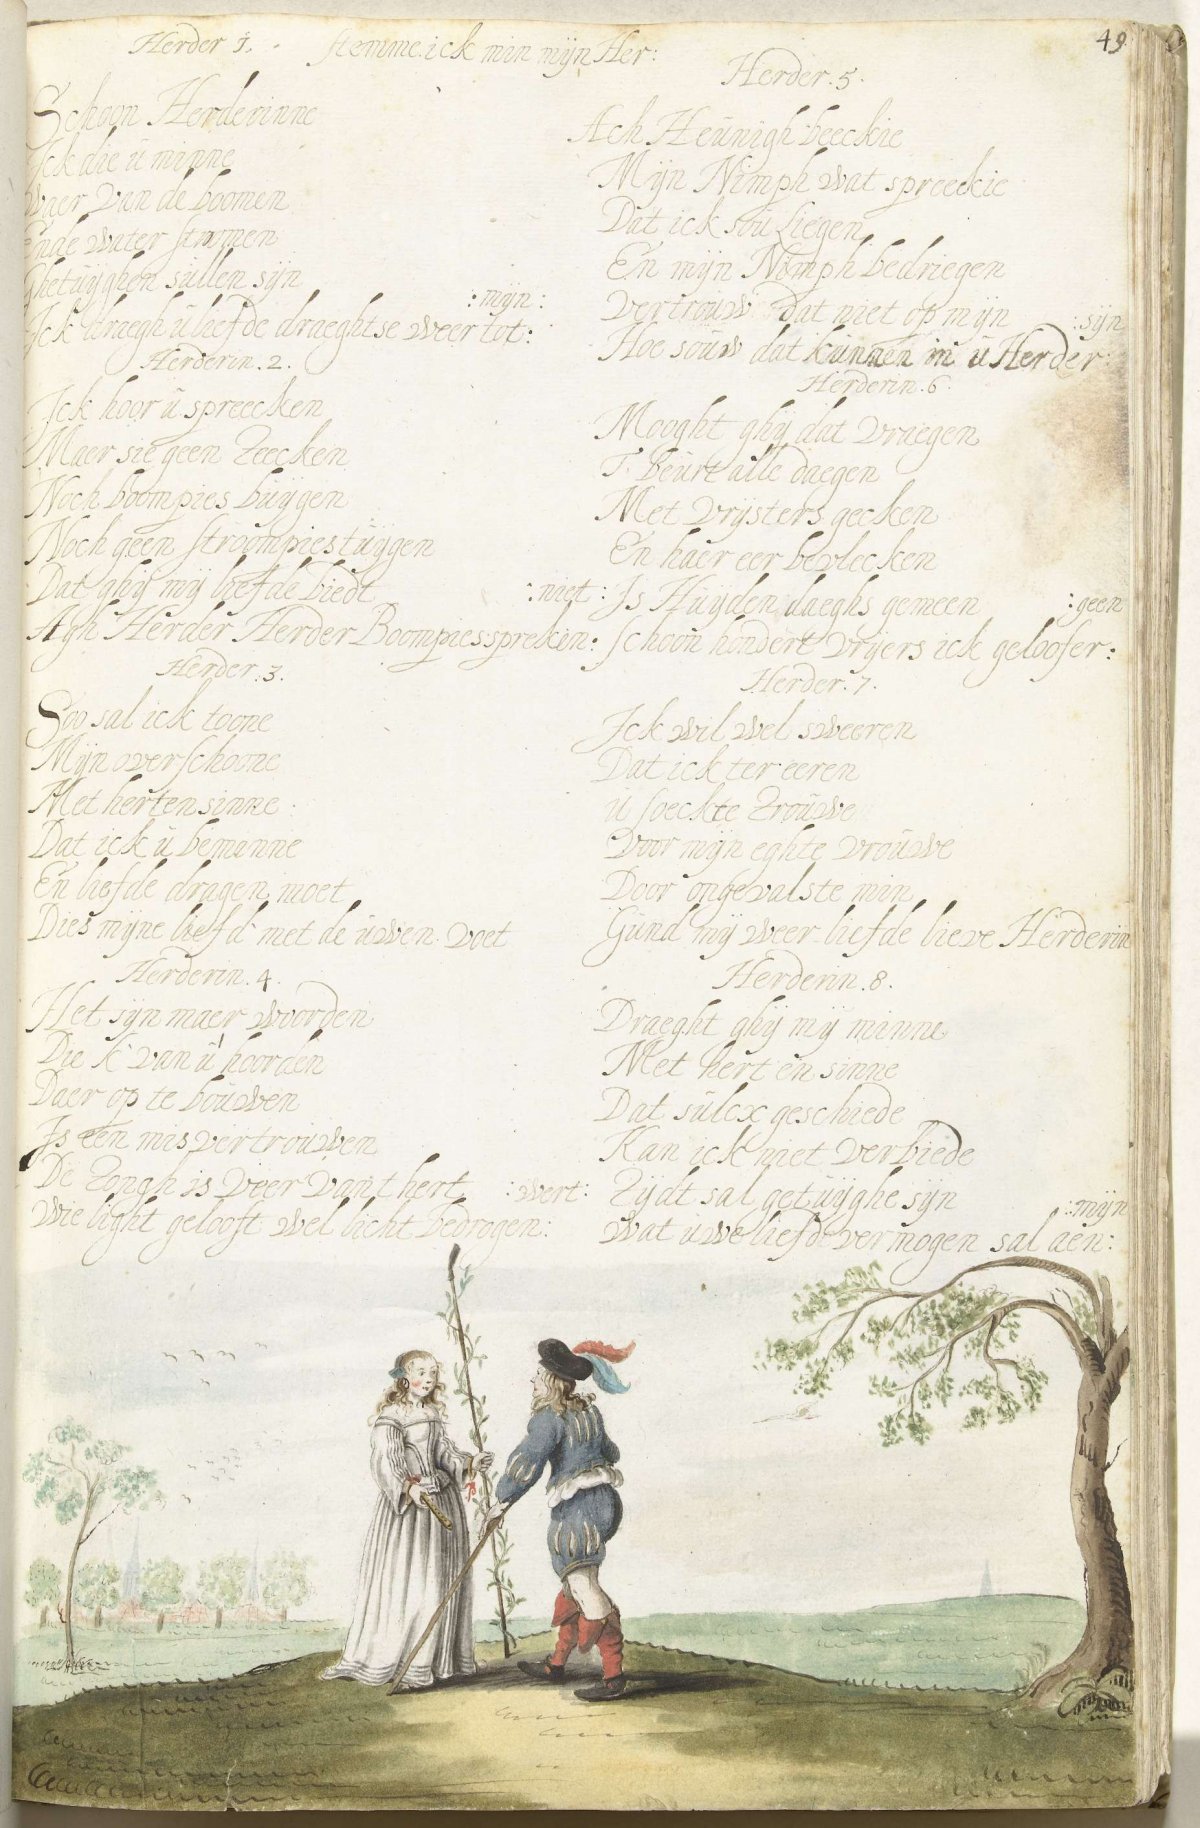 Herder 1. stemme. ick min mijn Her:
49
Schoon Herderinne
Ick die ü minne
Waer van de boomen
Ende water stromen
Ghetüÿghen süllen sijn
:mijn:
Ick draegh ü liefde draeghtse weer tot:
Herderin. 2.
Ick hoor ü spreecken
Maer sie geen Teecken
Noch boompies büÿgen
Noch geen stroompies tüÿgen
Dat ghij mij liefde biedt
:niet:
Agh Herder Herder Boompies spreken:
Herder. 3.
Soo sal ick toone
Mijn overschoone
Met herten sinne
Dat ick ü beminne
En liefde dragen moet
Dies mijne liefd' met de üwen voet
Herderin. 4.
Het sijn maer woorden
Die k' van ü hoorden
Daer op te boüwen
Is een misvertroüwen
De Tongh is veer van t hert
:wert:
Wie light gelooft wel licht bedrogen:
Herder. 5.
Ach Heünigh beeckie
Mijn Nimph wat spreeckie
Dat ick soü Liegen
En mijn Nimph bedriegen
Vertroüw dat niet op mijn
:sijn
Hoe soüw dat künnen in ü Herder:
Herderin. 6.
Mooght ghij dat vraegen
T. beürt alle daegen
Met vrijsters gecken
En haer eer bevlecken
Is Hüÿden daeghs gemeen
:geen
Schoon hondert vrijers ick geloofer:
Herder. 7.
Ick wil wel sweeren
Dat ick ter eeren
ü soeckte Troüwe
Voor mijn eghte vroüwe
Door ongevalste min
Günd mij weer liefde lieve Herderin
Herderin. 8.
Draeght ghij mij minne
Met hert en sinne
Dat sülcx geschiede
Kan ick niet verbiede
Tijdt sal getüÿghe sijn
:mijn
Wat üwe liefde vermogen sal aen: